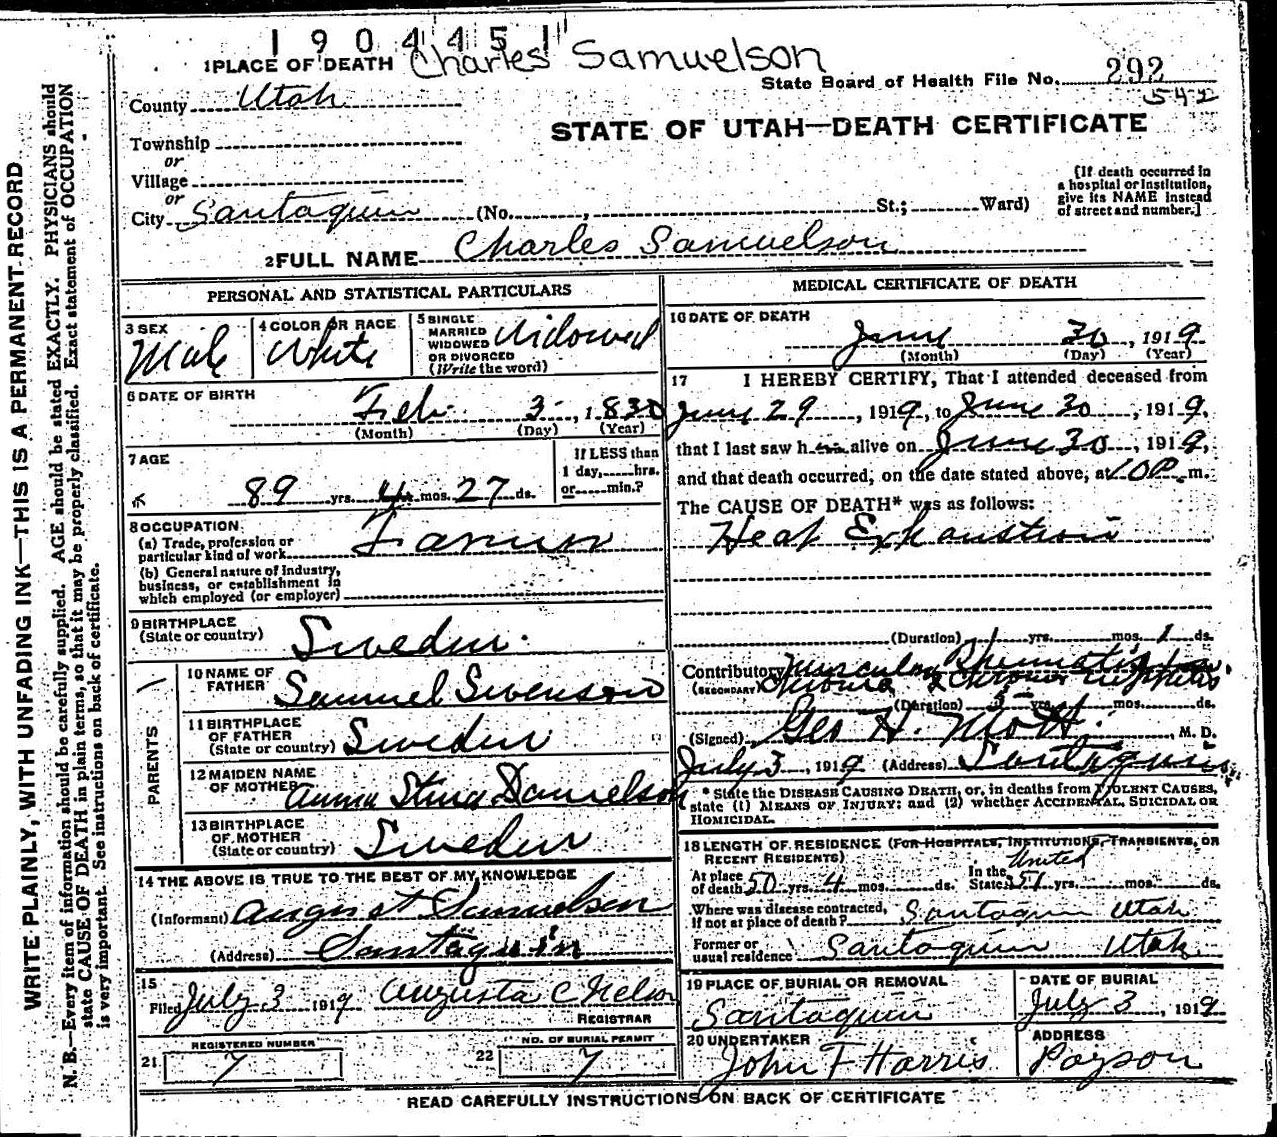 1904451
1PLACE OF DEATH Charles Samuelson
State Board of Health File No. 292
542
County Utah
STATE OF UTAH—DEATH CERTIFICATE
Township
or
Village
or
City Santaquin (No. , St.; Ward)
[If death occurred in a hospital or institution, give its NAME instead of street and number.]
2FULL NAME Charles Samuelson
PERSONAL AND STATISTICAL PARTICULARS
3 SEX Male
4 COLOR OR RACE White
5 SINGLE MARRIED WIDOWED OR DIVORCED (Write the word) Widowed
6 DATE OF BIRTH
Feb. 3, 1830
(Month) (Day) (Year)
7 AGE
89 yrs. 4 mos. 27 ds.
If LESS than 1 day, hrs. or min.?
8 OCCUPATION
(a) Trade, profession or particular kind of work Farmer
(b) General nature of industry, business, or establishment in which employed (or employer)
9 BIRTHPLACE
(State or country) Sweden.
PARENTS
10 NAME OF FATHER Samuel Swenson
11 BIRTHPLACE OF FATHER (State or country) Sweden
12 MAIDEN NAME OF MOTHER Anna Stina Danielson
13 BIRTHPLACE OF MOTHER (State or country) Sweden
14 THE ABOVE IS TRUE TO THE BEST OF MY KNOWLEDGE
(Informant) August Samuelson
(Address) Santaquin
15
Filed July 3 1919 Augusta C Nelson
REGISTRAR
21 REGISTERED NUMBER 7
22 NO. OF BURIAL PERMIT 7
MEDICAL CERTIFICATE OF DEATH
16 DATE OF DEATH
June 30, 1919
(Month) (Day) (Year)
17 I HEREBY CERTIFY, That I attended deceased from
June 29, 1919, to June 30, 1919,
that I last saw h alive on June 30, 1919,
and that death occurred, on the date stated above, at 10P.m.
The CAUSE OF DEATH* was as follows:
Heat Exhaustion
(Duration) yrs. mos. 1 ds.
Contributory Muscular Rheumatism
(SECONDARY) Chronic & Chronic nephritis
(Duration) 5 yrs. mos. ds.
(Signed) Geo H. Mott. M. D.
July 3, 1919 (Address) Santaquin
* State the DISEASE CAUSING DEATH, or, in deaths from VIOLENT CAUSES, state (1) MEANS OF INJURY; and (2) whether ACCIDENTAL, SUICIDAL OR HOMICIDAL.
18 LENGTH OF RESIDENCE (FOR HOSPITALS, INSTITUTIONS, TRANSIENTS, OR RECENT RESIDENTS)
United
At place of death 50 yrs. 4 mos. ds. In the State 51 yrs. mos. ds.
Where was disease contracted, if not at place of death? Santaquin Utah
Former or usual residence Santaquin Utah
19 PLACE OF BURIAL OR REMOVAL
Santaquin
DATE OF BURIAL
July 3, 1919
20 UNDERTAKER
John F Harris
ADDRESS
Payson
READ CAREFULLY INSTRUCTIONS ON BACK OF CERTIFICATE
WRITE PLAINLY, WITH UNFADING INK—THIS IS A PERMANENT RECORD
N. B.—Every item of information should be carefully supplied. AGE should be stated EXACTLY. PHYSICIANS should
state CAUSE OF DEATH in plain terms, so that it may be properly classified. Exact statement of OCCUPATION
is very important. See instructions on back of certificate.